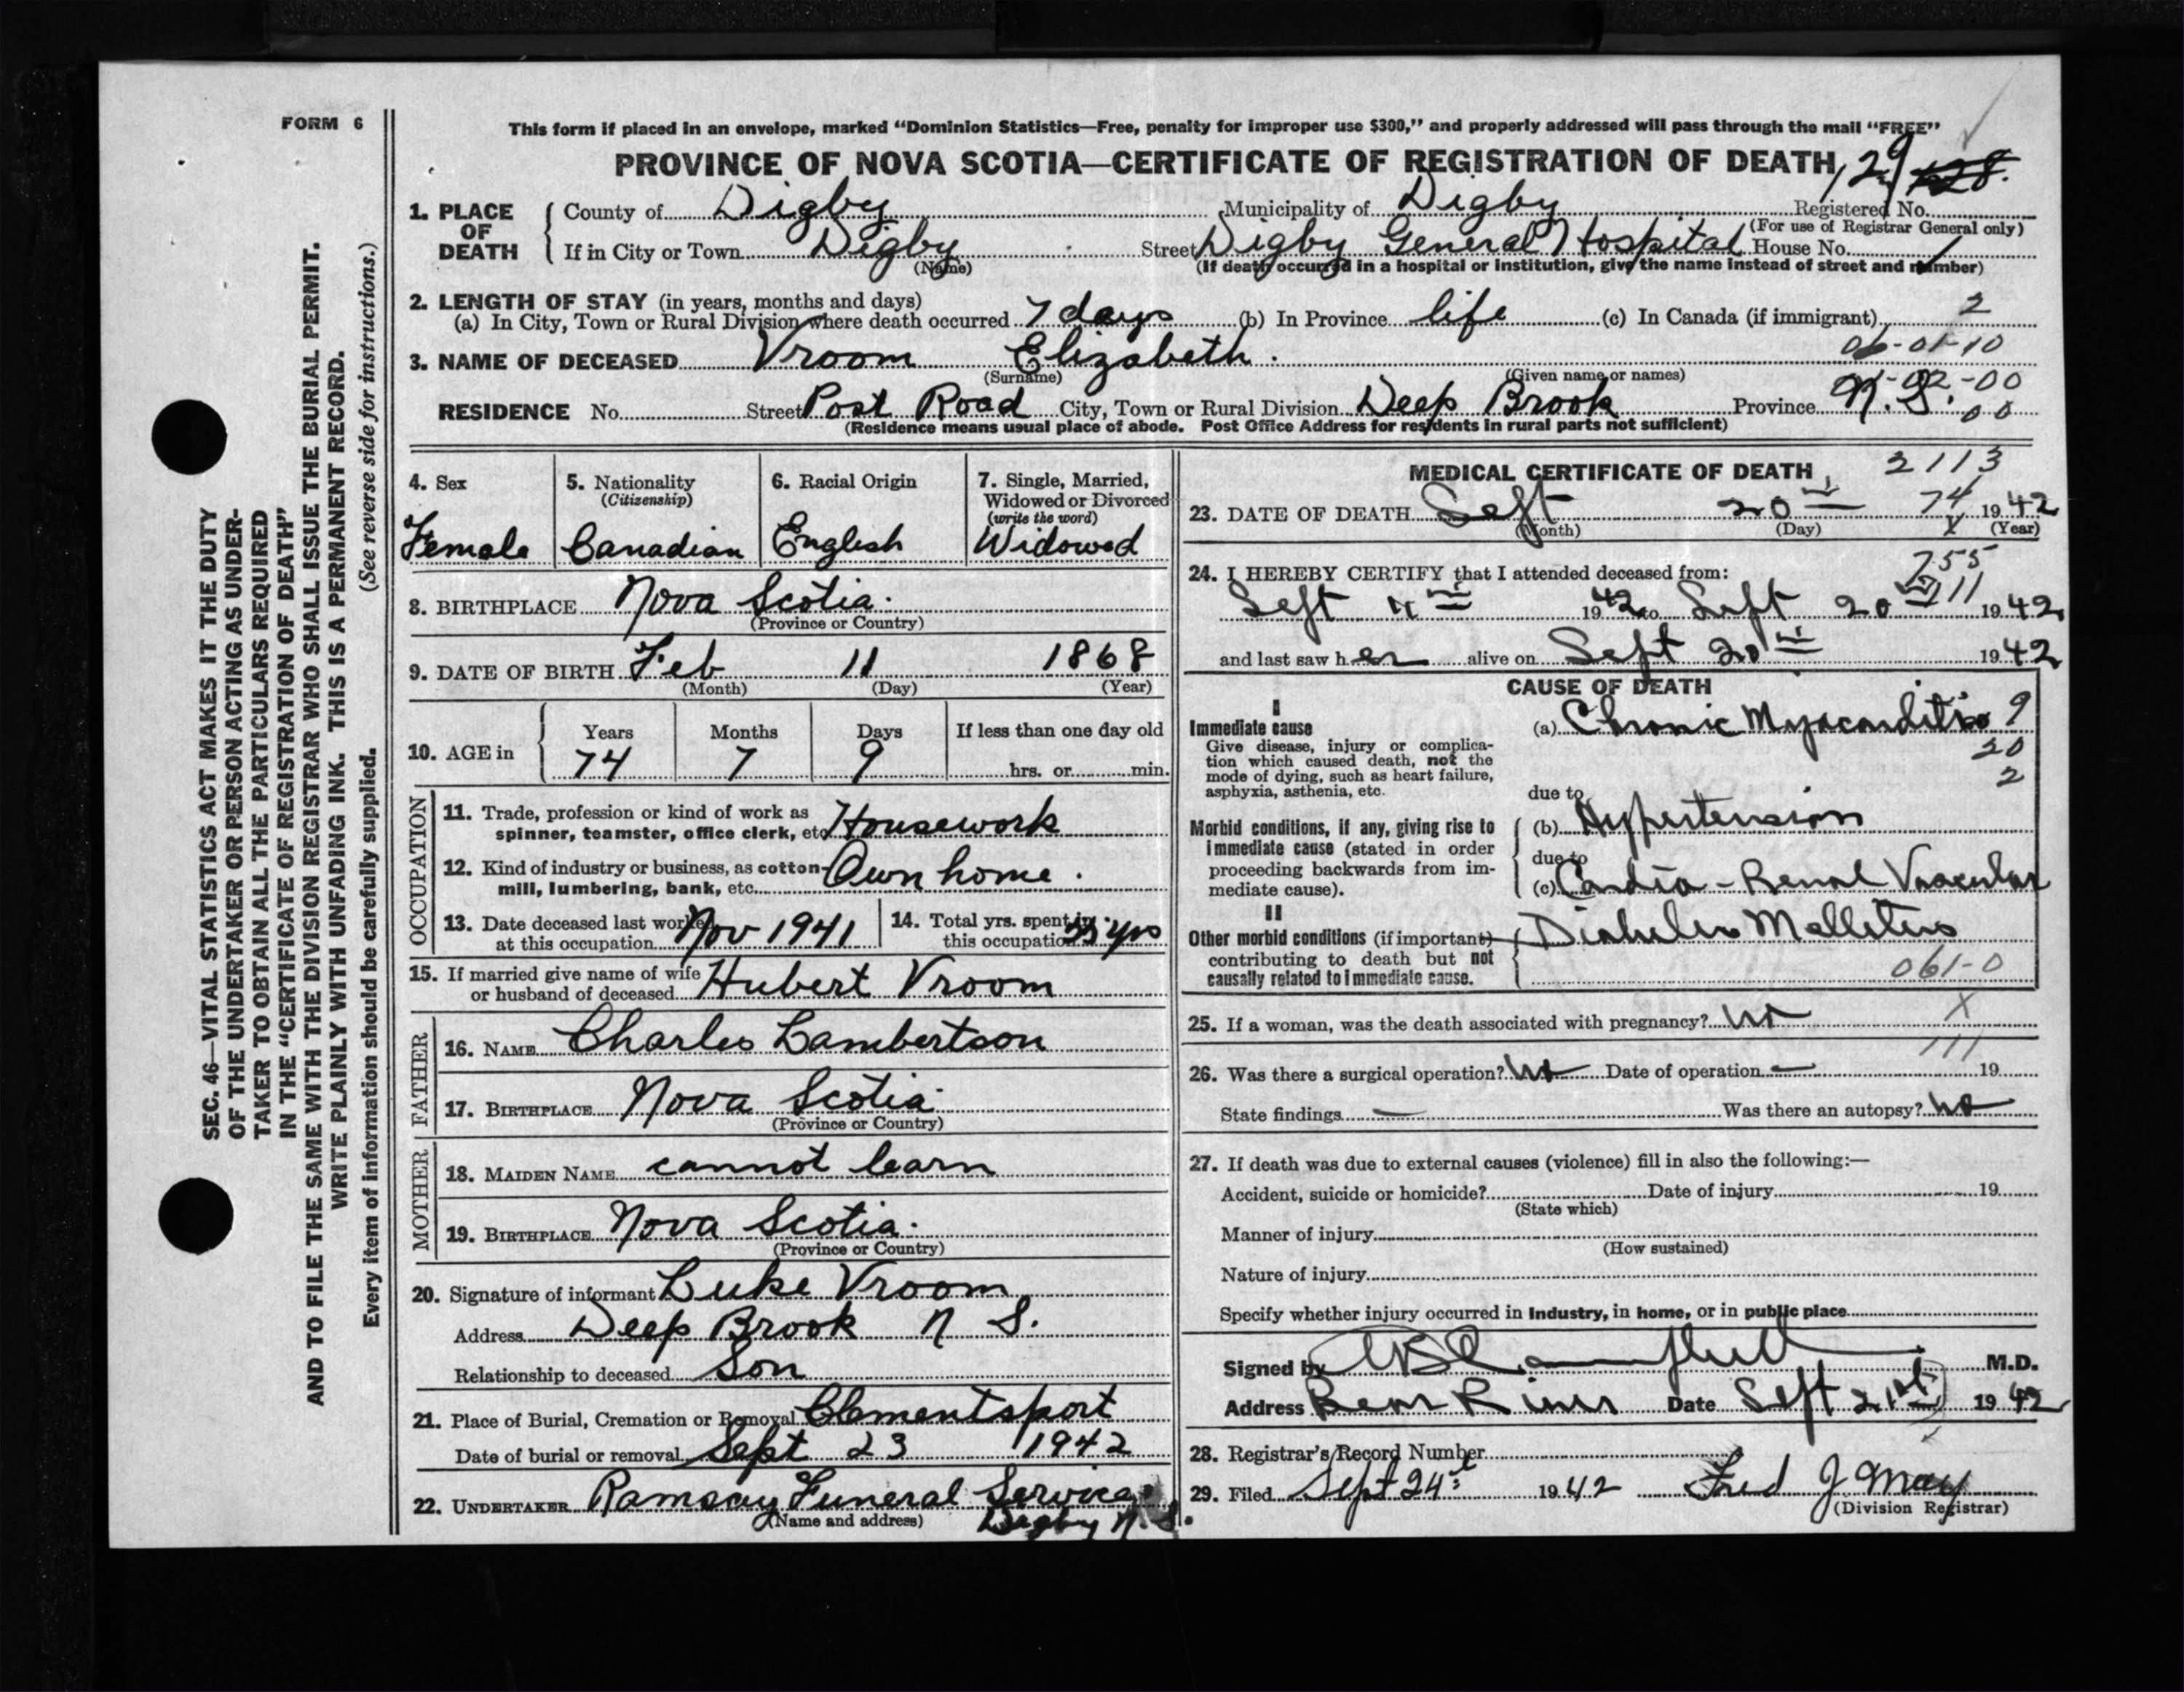 FORM 6
This form if placed in an envelope, marked "Dominion Statistics—Free, penalty for improper use $300," and properly addressed will pass through the mail "FREE"
PROVINCE OF NOVA SCOTIA—CERTIFICATE OF REGISTRATION OF DEATH 129 128.
1. PLACE OF DEATH County of Digby Municipality of Digby Registered No.
(For use of Registrar General only)
If in City or Town Digby Street Digby General Hospital House No.
(Name) (If death occurred in a hospital or institution, give the name instead of street and number)
2. LENGTH OF STAY (in years, months and days)
(a) In City, Town or Rural Division where death occurred 7 days (b) In Province life (c) In Canada (if immigrant) 2
06-01-10
3. NAME OF DECEASED Vroom Elizabeth.
(Surname) (Given name or names)
-02-00
RESIDENCE No. Street Post Road City, Town or Rural Division Deep Brook Province N.S. 00
(Residence means usual place of abode. Post Office Address for residents in rural parts not sufficient)
4. Sex
Female
5. Nationality
(Citizenship)
Canadian
6. Racial Origin
English
7. Single, Married,
Widowed or Divorced
(write the word)
Widowed
8. BIRTHPLACE Nova Scotia.
(Province or Country)
9. DATE OF BIRTH Feb 11 1868
(Month) (Day) (Year)
10. AGE in Years Months Days If less than one day old
74 7 9 hrs. or min.
OCCUPATION
11. Trade, profession or kind of work as
spinner, teamster, office clerk, etc. Housework
12. Kind of industry or business, as cotton-
mill, lumbering, bank, etc. Own home.
13. Date deceased last worked
at this occupation Nov 1941
14. Total yrs. spent in
this occupation yrs
15. If married give name of wife
or husband of deceased Hubert Vroom
FATHER
16. NAME Charles Lambertson
17. BIRTHPLACE Nova Scotia
(Province or Country)
MOTHER
18. MAIDEN NAME cannot learn
19. BIRTHPLACE Nova Scotia.
(Province or Country)
20. Signature of informant Luke Vroom
Address Deep Brook N S.
Relationship to deceased Son
21. Place of Burial, Cremation or Removal Clementsport
Date of burial or removal Sept 23 1942
22. UNDERTAKER Ramsay Funeral Service
(Name and address) Digby N.S.
MEDICAL CERTIFICATE OF DEATH 2113
74
23. DATE OF DEATH Sept 20th 1942
(Month) (Day) X (Year)
755
24. I HEREBY CERTIFY that I attended deceased from:
211
Sept 4th 1942 to Sept 20th 1942
and last saw her alive on Sept 20th 1942
CAUSE OF DEATH
I
Immediate cause (a) Chronic Myocarditis 9
Give disease, injury or complica-
tion which caused death, not the 20
mode of dying, such as heart failure, 2
asphyxia, asthenia, etc.
due to
Morbid conditions, if any, giving rise to (b) Hypertension
immediate cause (stated in order due to
proceeding backwards from im-
mediate cause). (c) Cardio-Renal Vascular
II
Other morbid conditions (if important) Diabetes Mellitus
contributing to death but not
causally related to immediate cause. 061-0
25. If a woman, was the death associated with pregnancy? no X
111
26. Was there a surgical operation? no Date of operation — 19
State findings — Was there an autopsy? no
27. If death was due to external causes (violence) fill in also the following:—
Accident, suicide or homicide? Date of injury 19
(State which)
Manner of injury
(How sustained)
Nature of injury
Specify whether injury occurred in Industry, in home, or in public place
Signed by M.D.
Address Bear River Date Sept 21st 1942
28. Registrar's Record Number
29. Filed Sept 24th 1942 Fred J. May
(Division Registrar)
SEC. 46—VITAL STATISTICS ACT MAKES IT THE DUTY
OF THE UNDERTAKER OR PERSON ACTING AS UNDER-
TAKER TO OBTAIN ALL THE PARTICULARS REQUIRED
IN THE "CERTIFICATE OF REGISTRATION OF DEATH"
AND TO FILE THE SAME WITH THE DIVISION REGISTRAR WHO SHALL ISSUE THE BURIAL PERMIT.
WRITE PLAINLY WITH UNFADING INK. THIS IS A PERMANENT RECORD.
Every item of information should be carefully supplied. (See reverse side for instructions.)